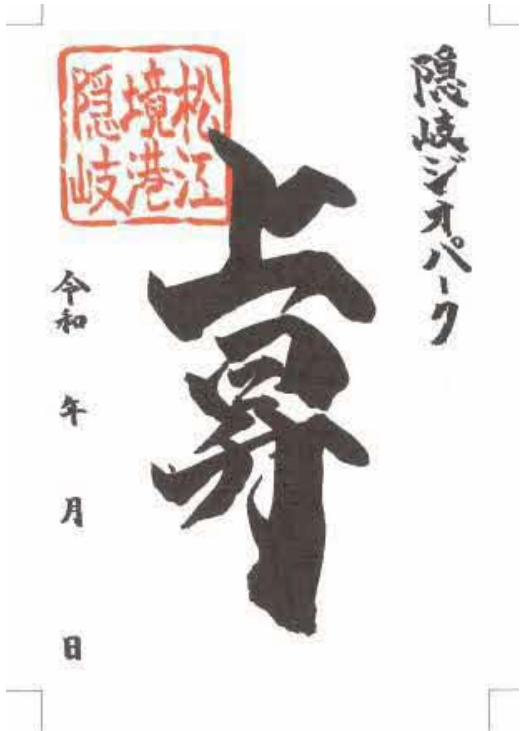 隠岐ジオパーク
上昇
松江
境港
隠岐
令和 年 月 日